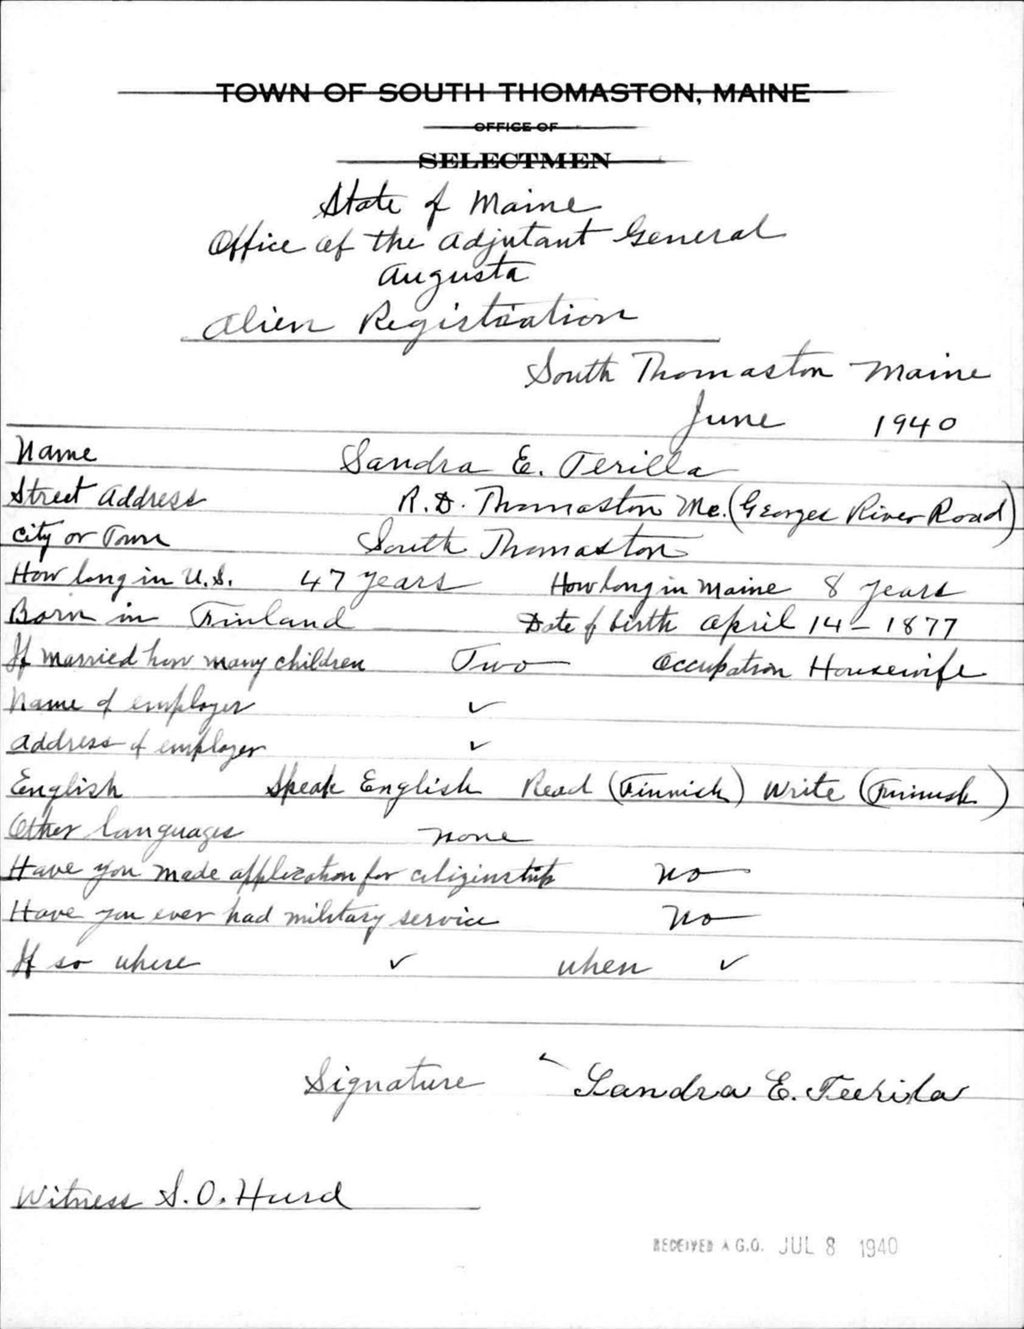 TOWN OF SOUTH THOMASTON, MAINE
OFFICE OF
SELECTMEN
State of Maine
Office of the Adjutant General
Augusta
Alien Registration
South Thomaston Maine
June 1940
Name Sandra E. Terilla
Street Address R.D. Thomaston Me. (Georges River Road)
City or Town South Thomaston
How long in U.S. 47 years How long in Maine 8 years
Born in Finland Date of birth April 14 - 1877
If married how many children Two Occupation Housewife
Name of employer ✓
Address of employer ✓
English Speak English Read (Finnish) Write (Finnish)
Other languages none
Have you made application for citizenship no
Have you ever had military service no
If so where ✓ when ✓
Signature Sandra E. Teerila
Witness S. O. Hurd
RECEIVED A.G.O. JUL 8 1940